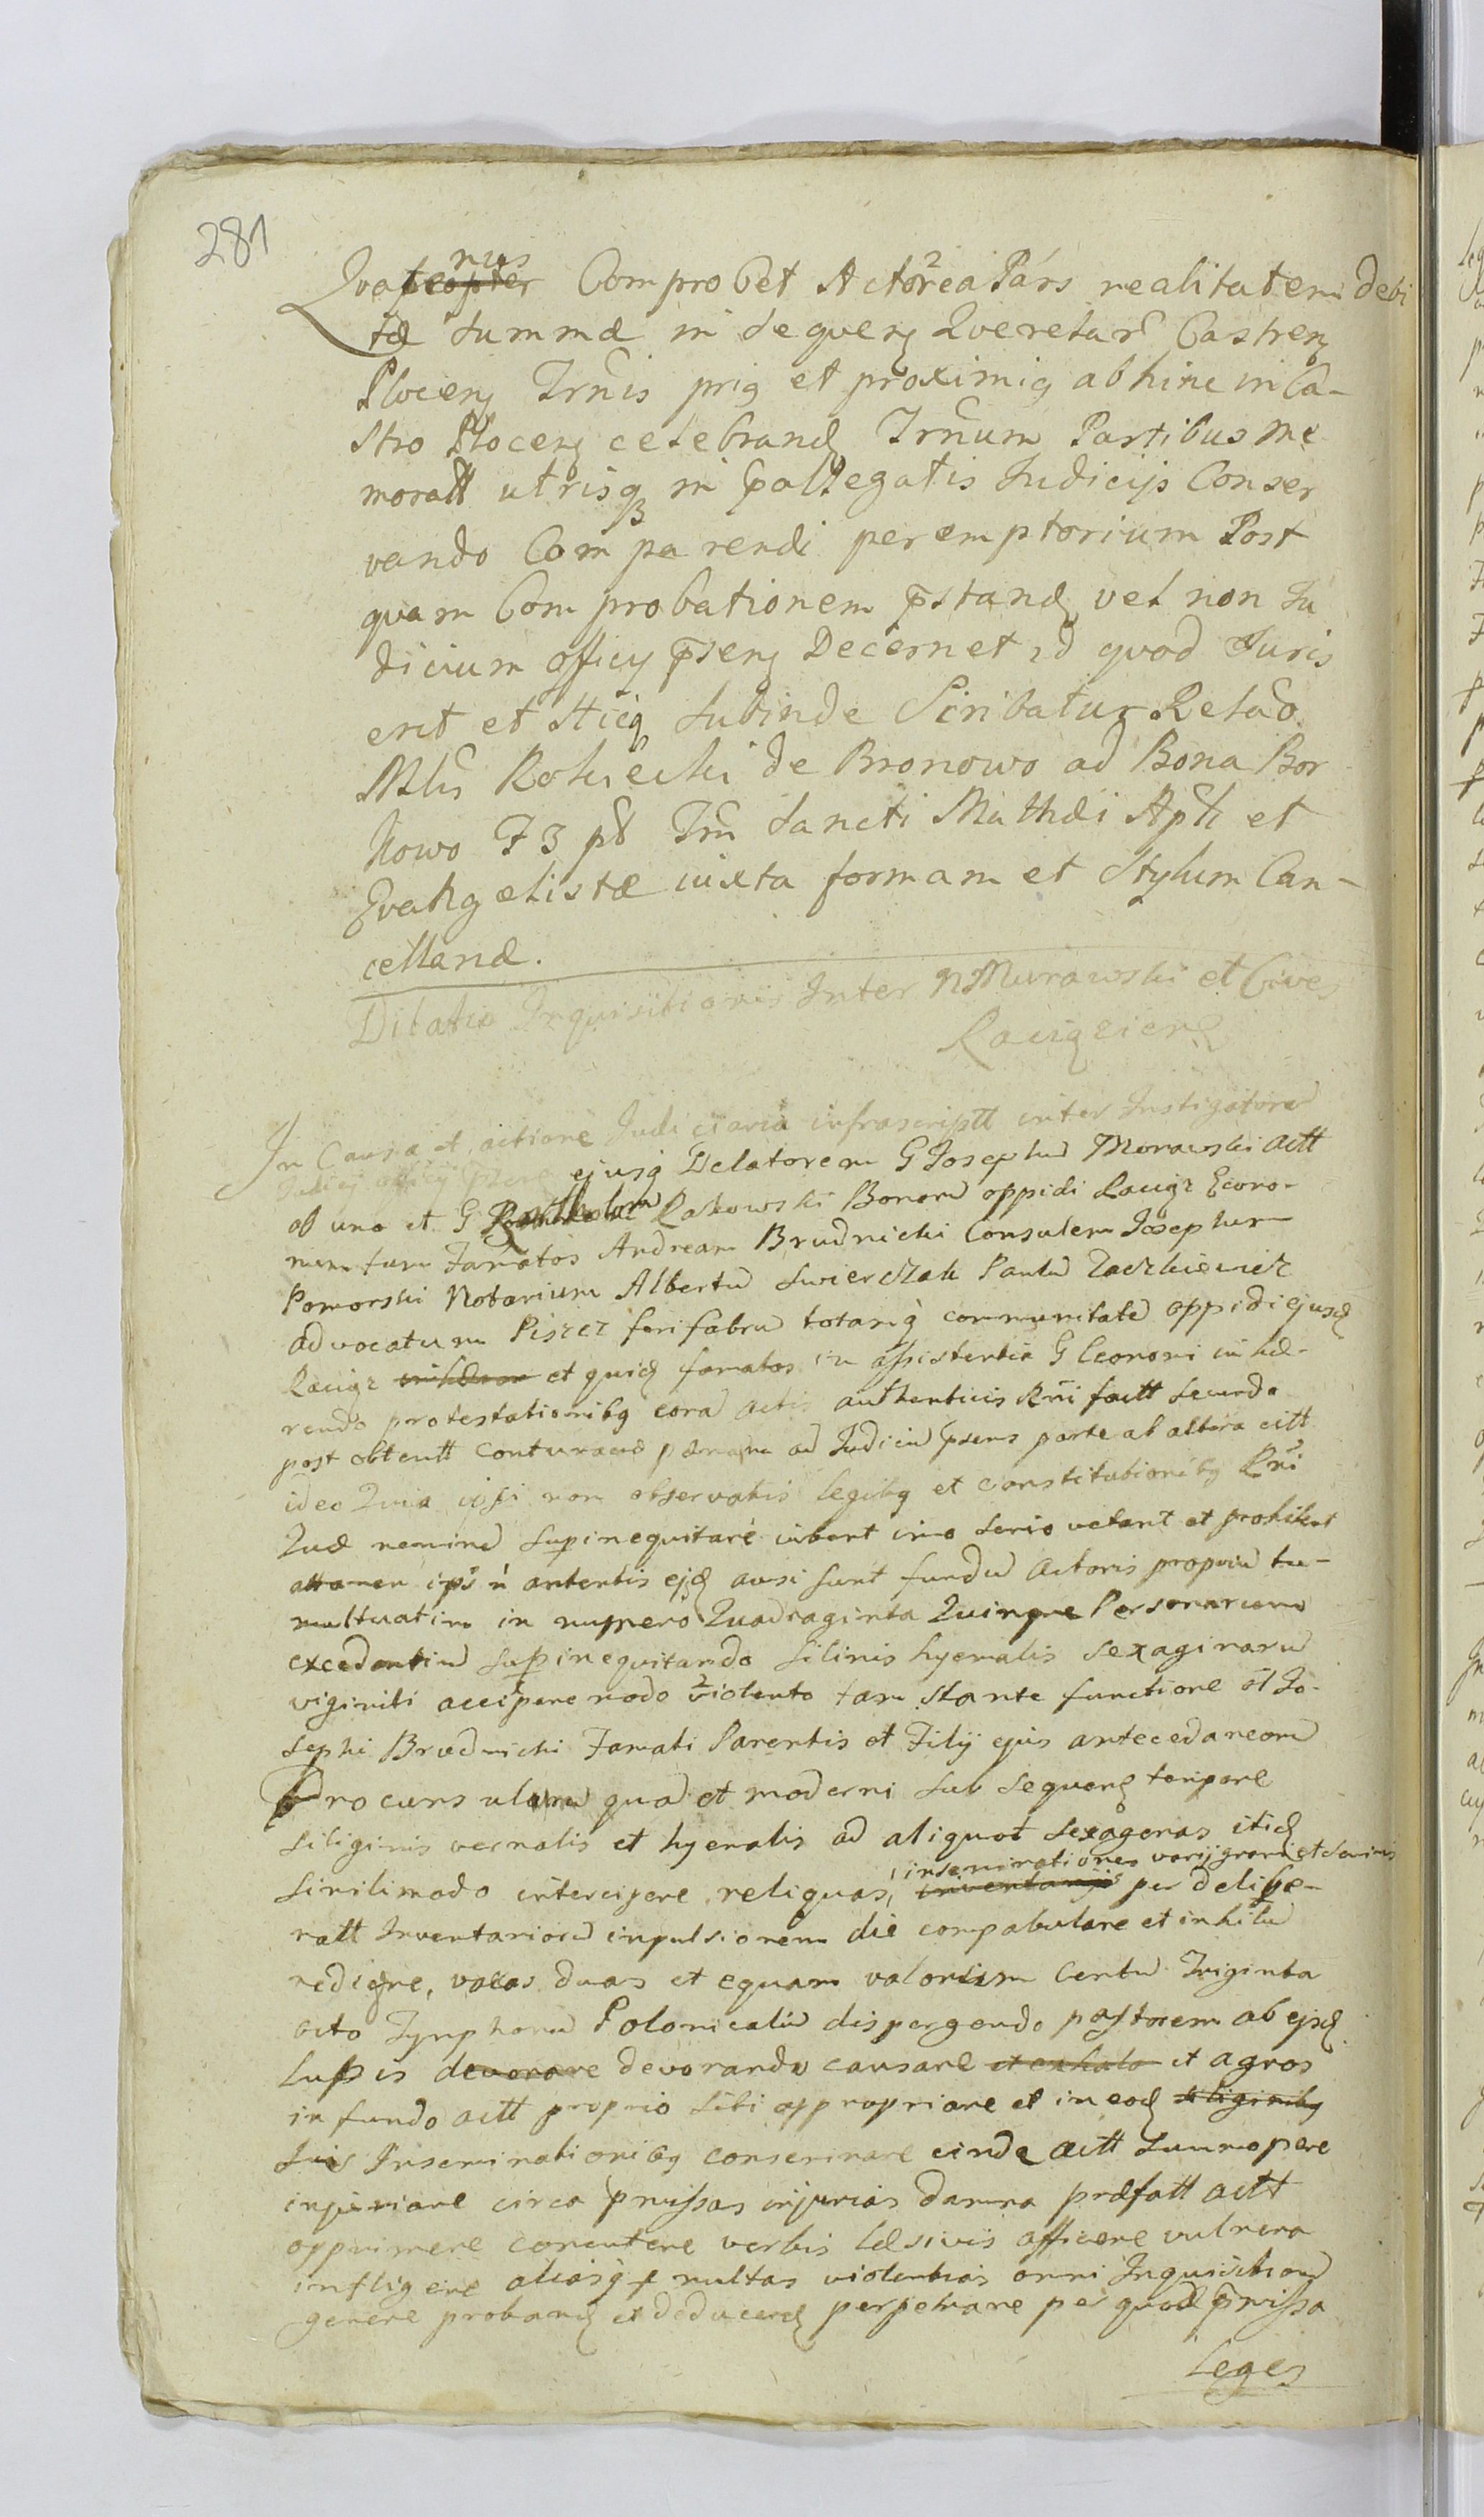 281
Quatenus Comprobet Actorea Pars realitatem debi
tæ summæ in sequenʒ Queretur Castrenʒ
Plocenʒ Trnis priʒ et proximiʒ abhinc in Ca-
stro Plocenʒ celebrandʒ Trnum Partibus me
moratt utrisqʒ in pallegatis Judicijs Conser
vando Comparendi peremptorium Post
quam Comprobationem pstandʒ vel non Ju
dicium officij psenʒ Decernet id quod Juris
erit et sticʒ Subinde Scribatur Relao
Mtri Rokicki de Bronowo ad Bona Bor
kowo F 3 pt Fm Sancti Mathæi Aptli et
Evangelistæ iuxta formam et Stylum Can-
cellanæ.
Dilatio Inquisitionis Inter N Murawski et Cives
Raciązienʒ
In Causa et actione Judiciaria infrascriptt inter Instigatore
Judicij officij psens ejusq Delatorem G Josephu Morawski actt
ab una et G Rakowski Bonoru oppidi Raciąz Econo-
mum tum Famatos Andream Brudnicki Consulem Josephum
Pomorski Notarium Albertu Swierczak Paulu Zaczkiewicz
advocatum Piszcz ferifabru totamq communitate oppidi ejusdʒ
Raciąz et quidʒ famatos in assistentia G Economi inhæ-
rendo protestationibʒ cora actis authenticis Rni factt secundo
post obtentt contumaciæ pænam ad Judiciu psens parte ab altera citt
ideo Quia ipsi non observatis legibʒ et constitutionibʒ Rni
Quæ nemine supinequitare iubent imo serio vetant et prohibent
attamen ips n antentis ejdʒ ausi sunt fundu actoris propriu tu-
multuatim in numero Quadraginta Quinque Personarum
excedentiu supinequitando siliginis hyemalis sexaginaru
viginiti accipere modo violento tam stante functione ol Jo-
sephi Brudnicki Famati Parentis et Filij ejus antecedaneoru
Proconsularu qua et moderni sub sequenʒ tempore
siliginis vernalis et hyemalis ad aliquot sexagenas itidʒ
inseminationes varij grani et seminis
similimodo intercipere reliquas, per delibe-
ratt Inventarioru inpulsionem die compabulare et in hilu
redigere, vacas duas et equam valorium Centu Triginta
octo Tynphoru Polonicaliu dispergendo pastorem ab ejsdʒ
lupis devorare devorandu causare et agros
in fundo actt proprio sibi appropriare et in eodʒ
suis Inseminationibʒ conseminare einde actt summopere
injuriare circa pmissas injurias damna præfatt actt
opprimere concutere verbis læsivis afficere vulnera
infligere aliasqʒ multas violentias omni Inquisitionu
genere probandʒ et deducendʒ perpetrare per quod pmissa
Leges